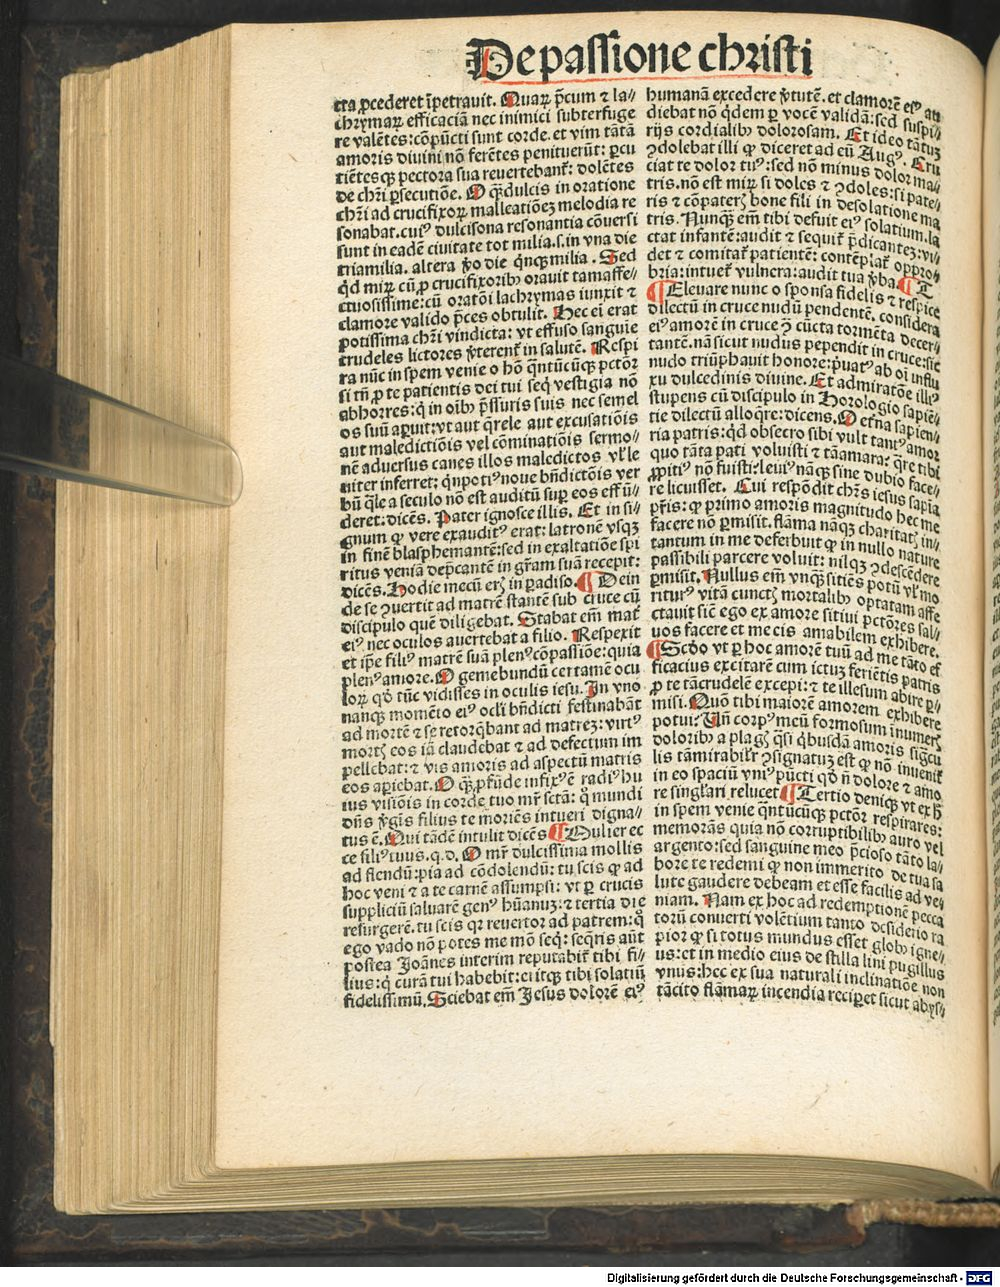 De passione christi
tra ꝓcederet īpetrauit. Quaꝝ p̄cum ⁊ la⸗
chrymaꝝ efficaciā nec inimici subterfuge
re valētes: cōpūcti sunt corde. et vim tātā
amoris diuini nō ferētes penituerūt: ꝑcu
tiētesqꝫ pectora sua reuertebant᷑: dolētes
de chr̄i ꝑsecutiōe. O qꝫ dulcis in oratione
chr̄i ad crucifixoꝝ malleatiōeꝫ melodia re
sonabat. cuiꝰ dulcisona resonantia cōuersi
sunt in eadē ciuitate tot milia. s. in vna die
triamilia. altera ꝟo die qͥnqꝫmilia. Sed
qͥd miꝝ cū ꝓ crucifixoribꝰ orauit tam affe⸗
ctuosissime: cū oratōi lachrymas iunxit ⁊
clamore valido p̄ces obtulit. Hec ei erat
potissima chr̄i vindicta: vt effuso sanguie
crudeles lictores ꝟterent᷑ in salutē. Respi
ra nūc in spem venie o hō qͣntūcūqꝫ pctōr
si tn̄ ꝓ te patientis dei tui seqͥ vestigia nō
abhorres: qͥ in oībꝰ p̄ssuris suis nec semel
os suū aꝑuit: vt aut qͥrele aut excusatiōis
aut maledictiōis vel cōminatiōis sermo⸗
nē aduersus canes illos maledictos vl̓ le
uiter inferret: qͥnpotiꝰ noue bn̄dictōis ver
bū qͣle a seculo nō est auditū suꝑ eos effū⸗
deret: dicēs. Pater ignosce illis. Et in si⸗
gnum ꝙ vere exauditꝰ erat: latronē vsqꝫ
in finē blasphemantē: sed in exaltatiōe spi
ritus veniā dep̄cantē in gr̄am suā recepit:
dicēs. Hodie mecū eris in ꝑadiso. ¶ Dein
de se ꝯuertit ad matrē stantē sub cruce cū
discipulo quē diligebat. Stabat em̄ mat᷑
eiꝰ nec oculos auertebat a filio. Respexit
et ip̄e filiꝰ matrē suā plenꝰ cōpassiōe: quia
plenꝰ amore. O gemebundū certamē ocu
loꝝ qd̓ tūc vidisses in oculis iesu. In vno
nanqꝫ momēto eiꝰ ocl̓i bn̄dicti festinabāt
ad mortē ⁊ se retorqͥbant ad matreꝫ: virtꝰ
mortis eos iā claudebat ⁊ ad defectum im
pellebat: ⁊ vis amoris ad aspectū matris
eos aꝑiebat. O qꝫ ꝓfūde infixꝰ ē radiꝰ hu
ius visiōis in corde tuo mr̄ sctā: qͣ mundi
dn̄s ꝟgīs filius te moriēs intueri digna⸗
tus ē. Qui tādē intulit dicēs ¶ Mulier ec
ce filiꝰ tuus. q. d. O mr̄ dulcissima mollis
ad flendū: pia ad cōdolendū: tu scis ꝙ ad
hoc veni ⁊ a te carnē assumpsi: vt ꝑ crucis
suppliciū saluarē genꝰ hūanuꝫ: ⁊ tertia die
resurgerē. tu scis qr reuertor ad patrem: qͦ
ego vado nō potes me mō seqͥ: seqͤris aūt
postea Joānes interim reputabit᷑ tibi fi⸗
lius: qͥ curā tui habebit: ei itqꝫ tibi solatiū
fidelissimū. Sciebat em̄ Jesus dolorē eiꝰ
humanā excedere ꝟtutē. et clamorē eiꝰ au
diebat nō qͥdem ꝑ vocē validā: sed suspi⸗
rijs cordialibꝰ dolorosam. Et ideo tātuꝫ
ꝯdolebat illi ꝙ diceret ad eū Augꝰ. Cru
ciat te dolor tuꝰ: sed nō minus dolor ma⸗
tris. nō est miꝝ si doles ⁊ ꝯdoles: si pate⸗
ris ⁊ cōpateris bone fili in desolatione ma
tris. Nunqꝫ em̄ tibi defuit eiꝰ solatium. la
ctat infantē: audit ⁊ sequit᷑ p̄dicanteꝫ: vi⸗
det ⁊ comitat᷑ patientē: contēplat᷑ oppro⸗
bria: intuet᷑ vulnera: audit tua ꝟba. ¶ T
¶ Eleuare nunc o sponsa fidelis ⁊ respice
dilectū in cruce nudū pendentē. considera
eiꝰ amorē in cruce ꝯ cūcta tormēta decer⸗
tantē. nā sicut nudus pependit in cruce: sic
nudo triūphauit honore: p̄uatꝰ ab oī influ
xu dulcedinis diuine. Et admiratōe illiꝰ
stupens cū discipulo in Horologio sapiē⸗
tie dilectū alloqͤre: dicens. O etn̄a sapien⸗
ria patris: qd obsecro sibi vult tantꝰ amor
quo tāta pati voluisti ⁊ tā amara: qͣre tibi
ꝓpitiꝰ nō fuisti: leuiꝰ nāqꝫ sine dubio face⸗
re licuisset. Cui respōdit chr̄s iesus sapīa
pr̄is: ꝙ primo amoris magnitudo hec me
facere nō ꝑmisit. flāma nāqꝫ charitatis in⸗
tantum in me deferbuit ꝙ in nullo nature
passibili parcere voluit: nilqꝫ ꝯdescēdere
ꝑmisit. Nullus em̄ vnqꝫ sitiēs potū vl̓ mo
riturꝰ vitā cunctis mortalibꝰ optatam affe
ctauit sic̄ ego ex amore sitiui pctōres sal⸗
uos facere et me cis amabilem exhibere.
¶ Scd̓o vt ꝑ hoc amorē tuū ad me tāto ef
ficacius excitarē cum ictuꝫ feriētis patris
ꝓ te tā crudelē excepi: ⁊ te illesum abire ꝑ⸗
misi. Quō tibi maiorē amorem exhibere
potui: Un̄ corpꝰ meū formosum īnumeris
doloribꝰ a plagis qͣsi qͥbusdā amoris sigͥcu
lis tā mirabilr̄ ꝯsignatuꝫ est ꝙ nō inuenit᷑
in eo spaciū vniꝰ pūcti qd̓ n̄ dolore ⁊ amo
re singl̓ari relucet ¶ Tertio deniqꝫ vt ex h̄
in spem venie qͣntūcūqꝫ pctōr respirares:
memorās quia nō corruptibilibꝰ auro vel
argento: sed sanguine meo p̄cioso tāto la⸗
bore te redemi ꝙ non immerito de tua sa
lute gaudere debeam et esse facilis ad ve⸗
niam. Nam ex hoc ad redemptionē pecca
torū conuerti volētium tanto desiderio ra
pior ꝙ si totus mundus esset globꝰ igne⸗
us: et in medio eius de stilla lini pugillus
vnus: hec ex sua naturali inclinatiōe non
tā cito flāmaꝝ incendia reciꝑet sicut abys⸗
Digitalisierung gefördert durch die Deutsche Forschungsgemeinschaft - DFG